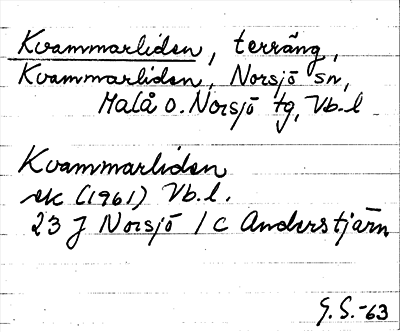 Kvammarliden, terräng,
Kvammarliden, Norsjö sn,
Malå o. Norsjö tg, Vb.l
Kvammarliden
ek (1961) Vb.l.
23 J Norsjö / c Anderstjärn
G.S.-63